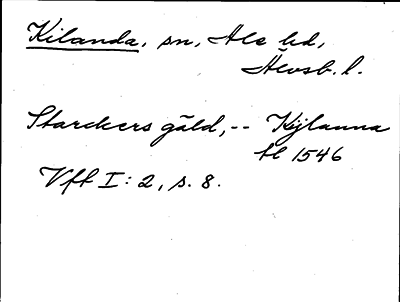 Kilanda, sn, Ale hd,
Älvsb. l.
Starckers gäld, -- Kijlanna
tl 1546
Vft I: 2, s. 8.